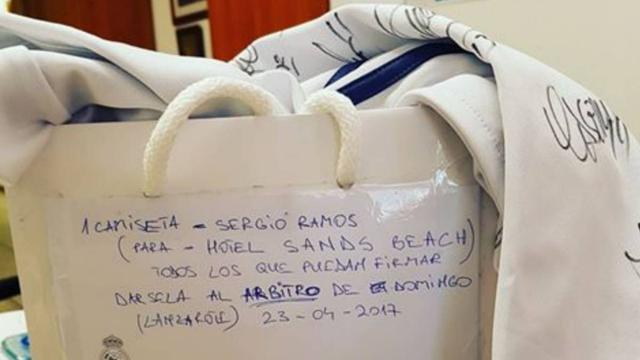 1 CAMISETA - SERGIO RAMOS
(PARA - HOTEL SANDS BEACH)
TODOS LOS QUE PUEDAN FIRMAR
DARSELA AL ARBITRO DE DOMINGO
(LANZAROTE) 23-04-2017